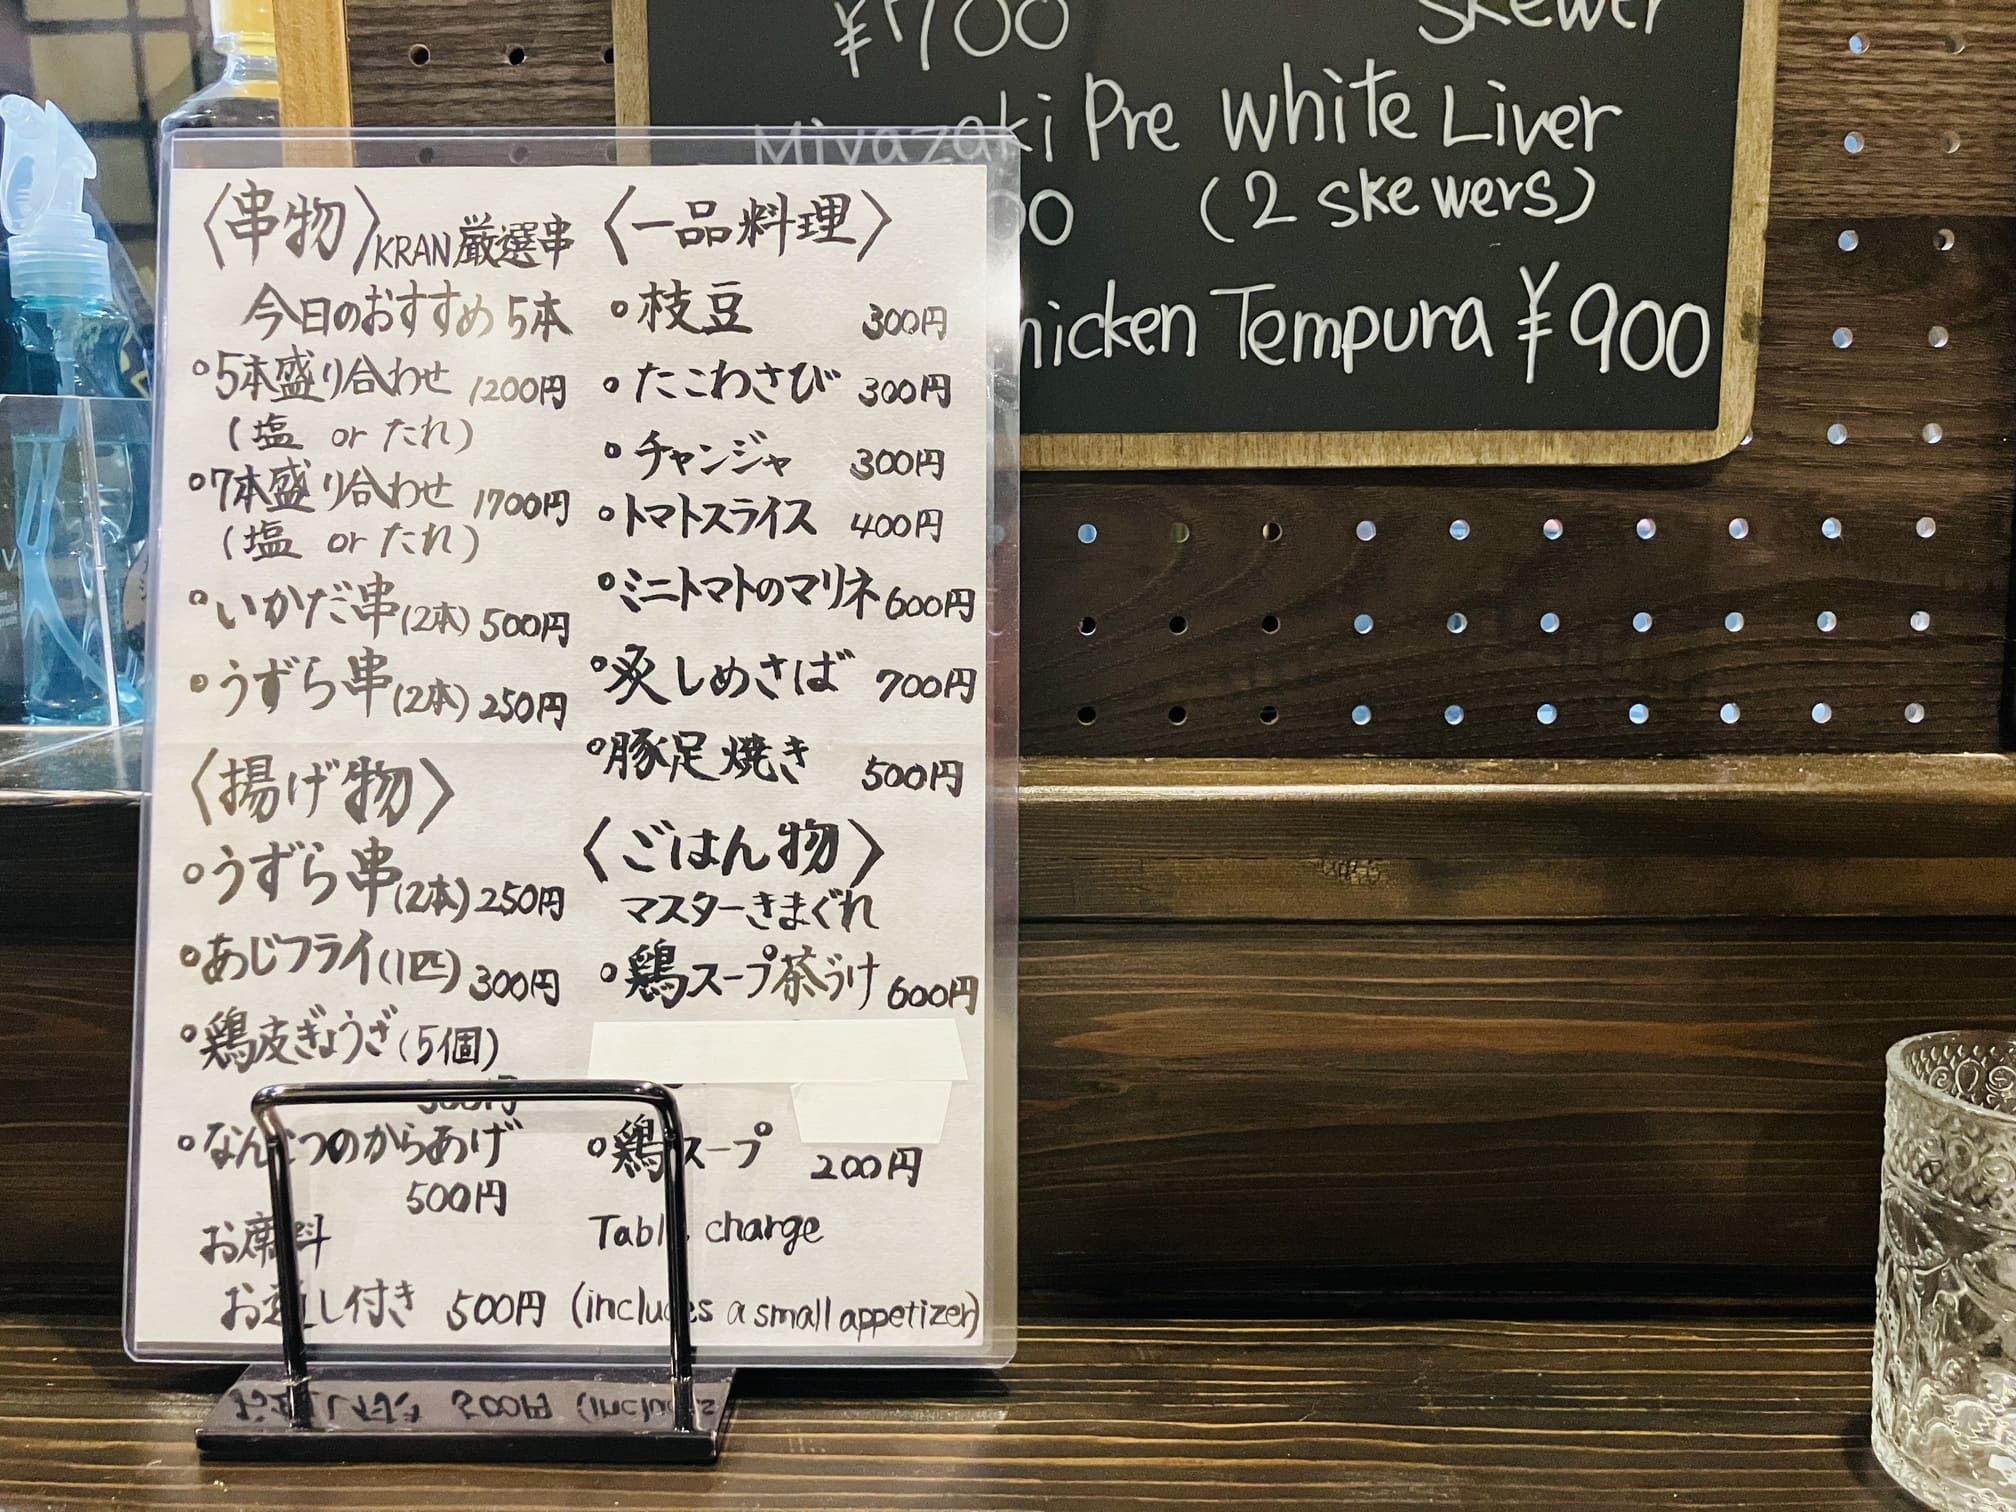 〈串物〉KRAN厳選串
今日のおすすめ5本
・5本盛り合わせ 1200円
(塩 or たれ)
・7本盛り合わせ 1700円
(塩 or たれ)
・いかだ串(2本) 500円
・うずら串(2本) 250円
〈揚げ物〉
・うずら串(2本) 250円
・あじフライ(1匹) 300円
・鶏皮ぎょうざ(5個)
・なんこつのからあげ
500円
お席料
お通し付き 500円
〈一品料理〉
・枝豆 300円
・たこわさび 300円
・チャンジャ 300円
・トマトスライス 400円
・ミニトマトのマリネ 600円
・炙しめさば 700円
・豚足焼き 500円
〈ごはん物〉
マスターきまぐれ
・鶏スープ茶づけ 600円
・鶏スープ 200円
Table charge
(includes a small appetizer)
¥700 Skewer
Miyazaki Pre White Liver
(2 skewers)
Chicken Tempura ¥900